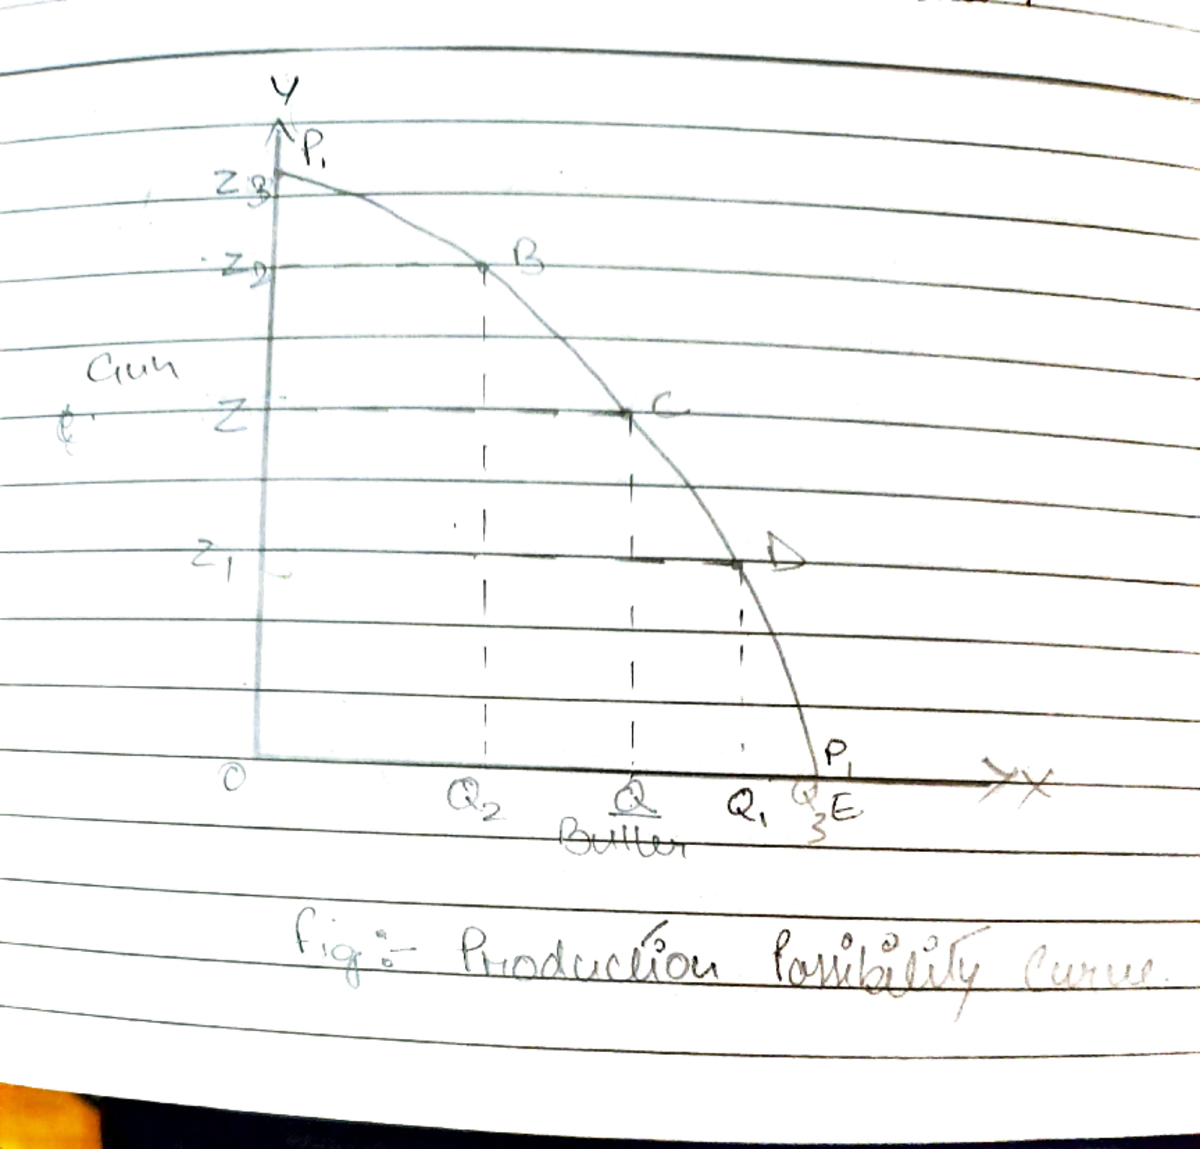 Y
P₁
Z₃
Z₂ B
Gun
Z C
Z₁ D
P₁
O Q₂ Q Q₁ Q₃ E X
Butter
Fig :- Production Possibility Curve.